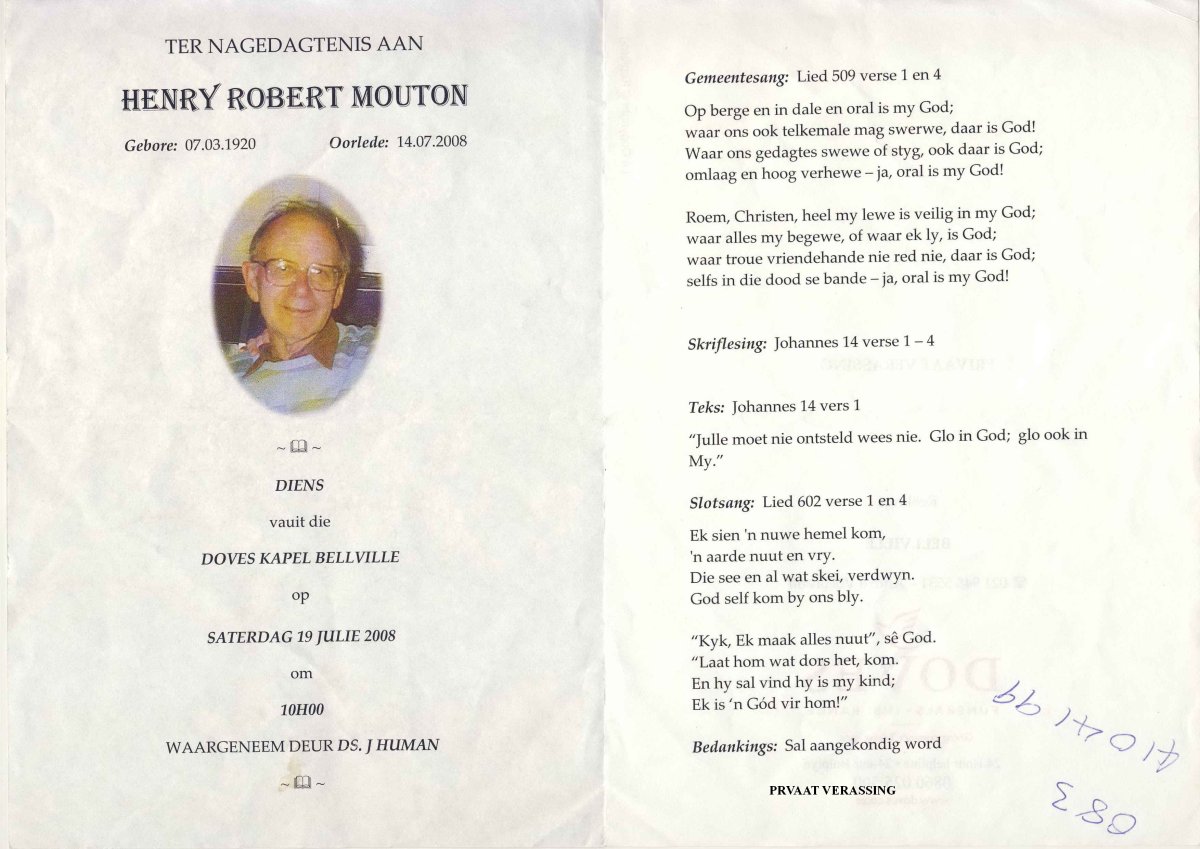 TER NAGEDAGTENIS AAN
HENRY ROBERT MOUTON
Gebore: 07.03.1920 Oorlede: 14.07.2008
~ 🕮 ~
DIENS
vauit die
DOVES KAPEL BELLVILLE
op
SATERDAG 19 JULIE 2008
om
10H00
WAARGENEEM DEUR DS. J HUMAN
~ 🕮 ~
Gemeentesang: Lied 509 verse 1 en 4
Op berge en in dale en oral is my God;
waar ons ook telkemale mag swerwe, daar is God!
Waar ons gedagtes swewe of styg, ook daar is God;
omlaag en hoog verhewe – ja, oral is my God!
Roem, Christen, heel my lewe is veilig in my God;
waar alles my begewe, of waar ek ly, is God;
waar troue vriendehande nie red nie, daar is God;
selfs in die dood se bande – ja, oral is my God!
Skriflesing: Johannes 14 verse 1 – 4
Teks: Johannes 14 vers 1
“Julle moet nie ontsteld wees nie. Glo in God; glo ook in
My.”
Slotsang: Lied 602 verse 1 en 4
Ek sien 'n nuwe hemel kom,
'n aarde nuut en vry.
Die see en al wat skei, verdwyn.
God self kom by ons bly.
“Kyk, Ek maak alles nuut”, sê God.
“Laat hom wat dors het, kom.
En hy sal vind hy is my kind;
Ek is ‘n Gód vir hom!”
Bedankings: Sal aangekondig word
PRVAAT VERASSING
083
4104199